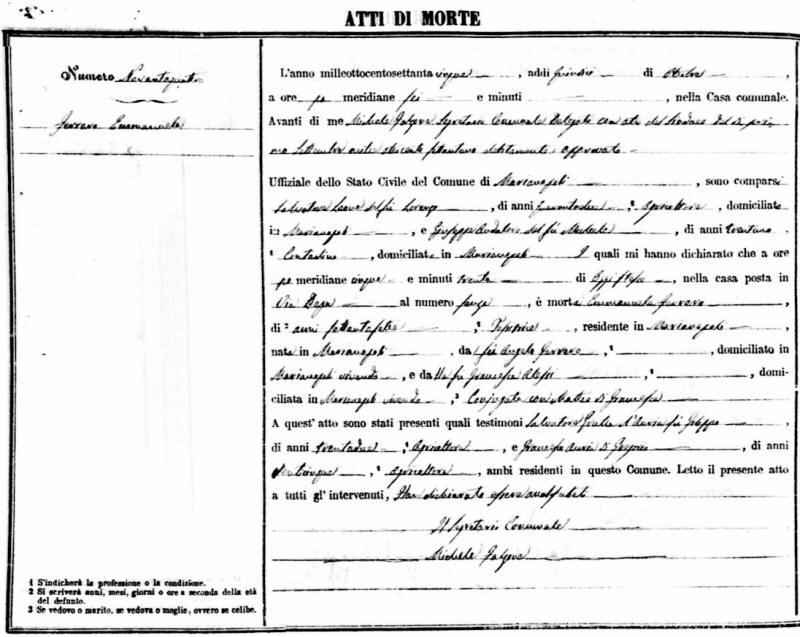 ATTI DI MORTE
Numero Novantaquattro
Ferrara Emmanuela
L'anno milleottocentosettanta cinque, addì quindici di Ottobre,
a ore po meridiane sei e minuti, nella Casa comunale.
Avanti di me Michele Segretario Comunale Delegato con atto del Sindaco del di pri
mo Settembre mille ottocento settantuno debitamente approvato
Uffiziale dello Stato Civile del Comune di Marianopoli, sono comparsi
Salvatore Leone del fu Lorenzo, di anni, ¹ Agricoltore, domiciliato
in Marianopoli, e Giuseppe del fu Michele, di anni trentuno
¹ Contadino, domiciliato in Marianopoli I quali mi hanno dichiarato che a ore
po meridiane cinque e minuti trenta di Oggi stesso, nella casa posta in
Via al numero, è morta Emmanuela Ferrara,
di ² anni settantasette, ¹, residente in Marianopoli,
nata in Marianopoli, da fu Angelo Ferrara, ¹, domiciliato in
Marianopoli vivendo, e da la fu Francesca Alessi, ¹, domi-
ciliata in Marianopoli vivendo, ³ Conjugata con Matteo di Francesca
A quest' atto sono stati presenti quali testimoni Salvatore fu Filippo,
di anni trentadue, ¹ Agricoltore, e di, di anni
, ¹ Agricoltore, ambi residenti in questo Comune. Letto il presente atto
a tutti gl' intervenuti, Han dichiarato essere analfabeti
Il Segretario Comunale
Michele
1 S'indicherà la professione o la condizione.
2 Si scriverà anni, mesi, giorni o ore a seconda della età
del defunto.
3 Se vedovo o marito, se vedova o moglie, ovvero se celibe.